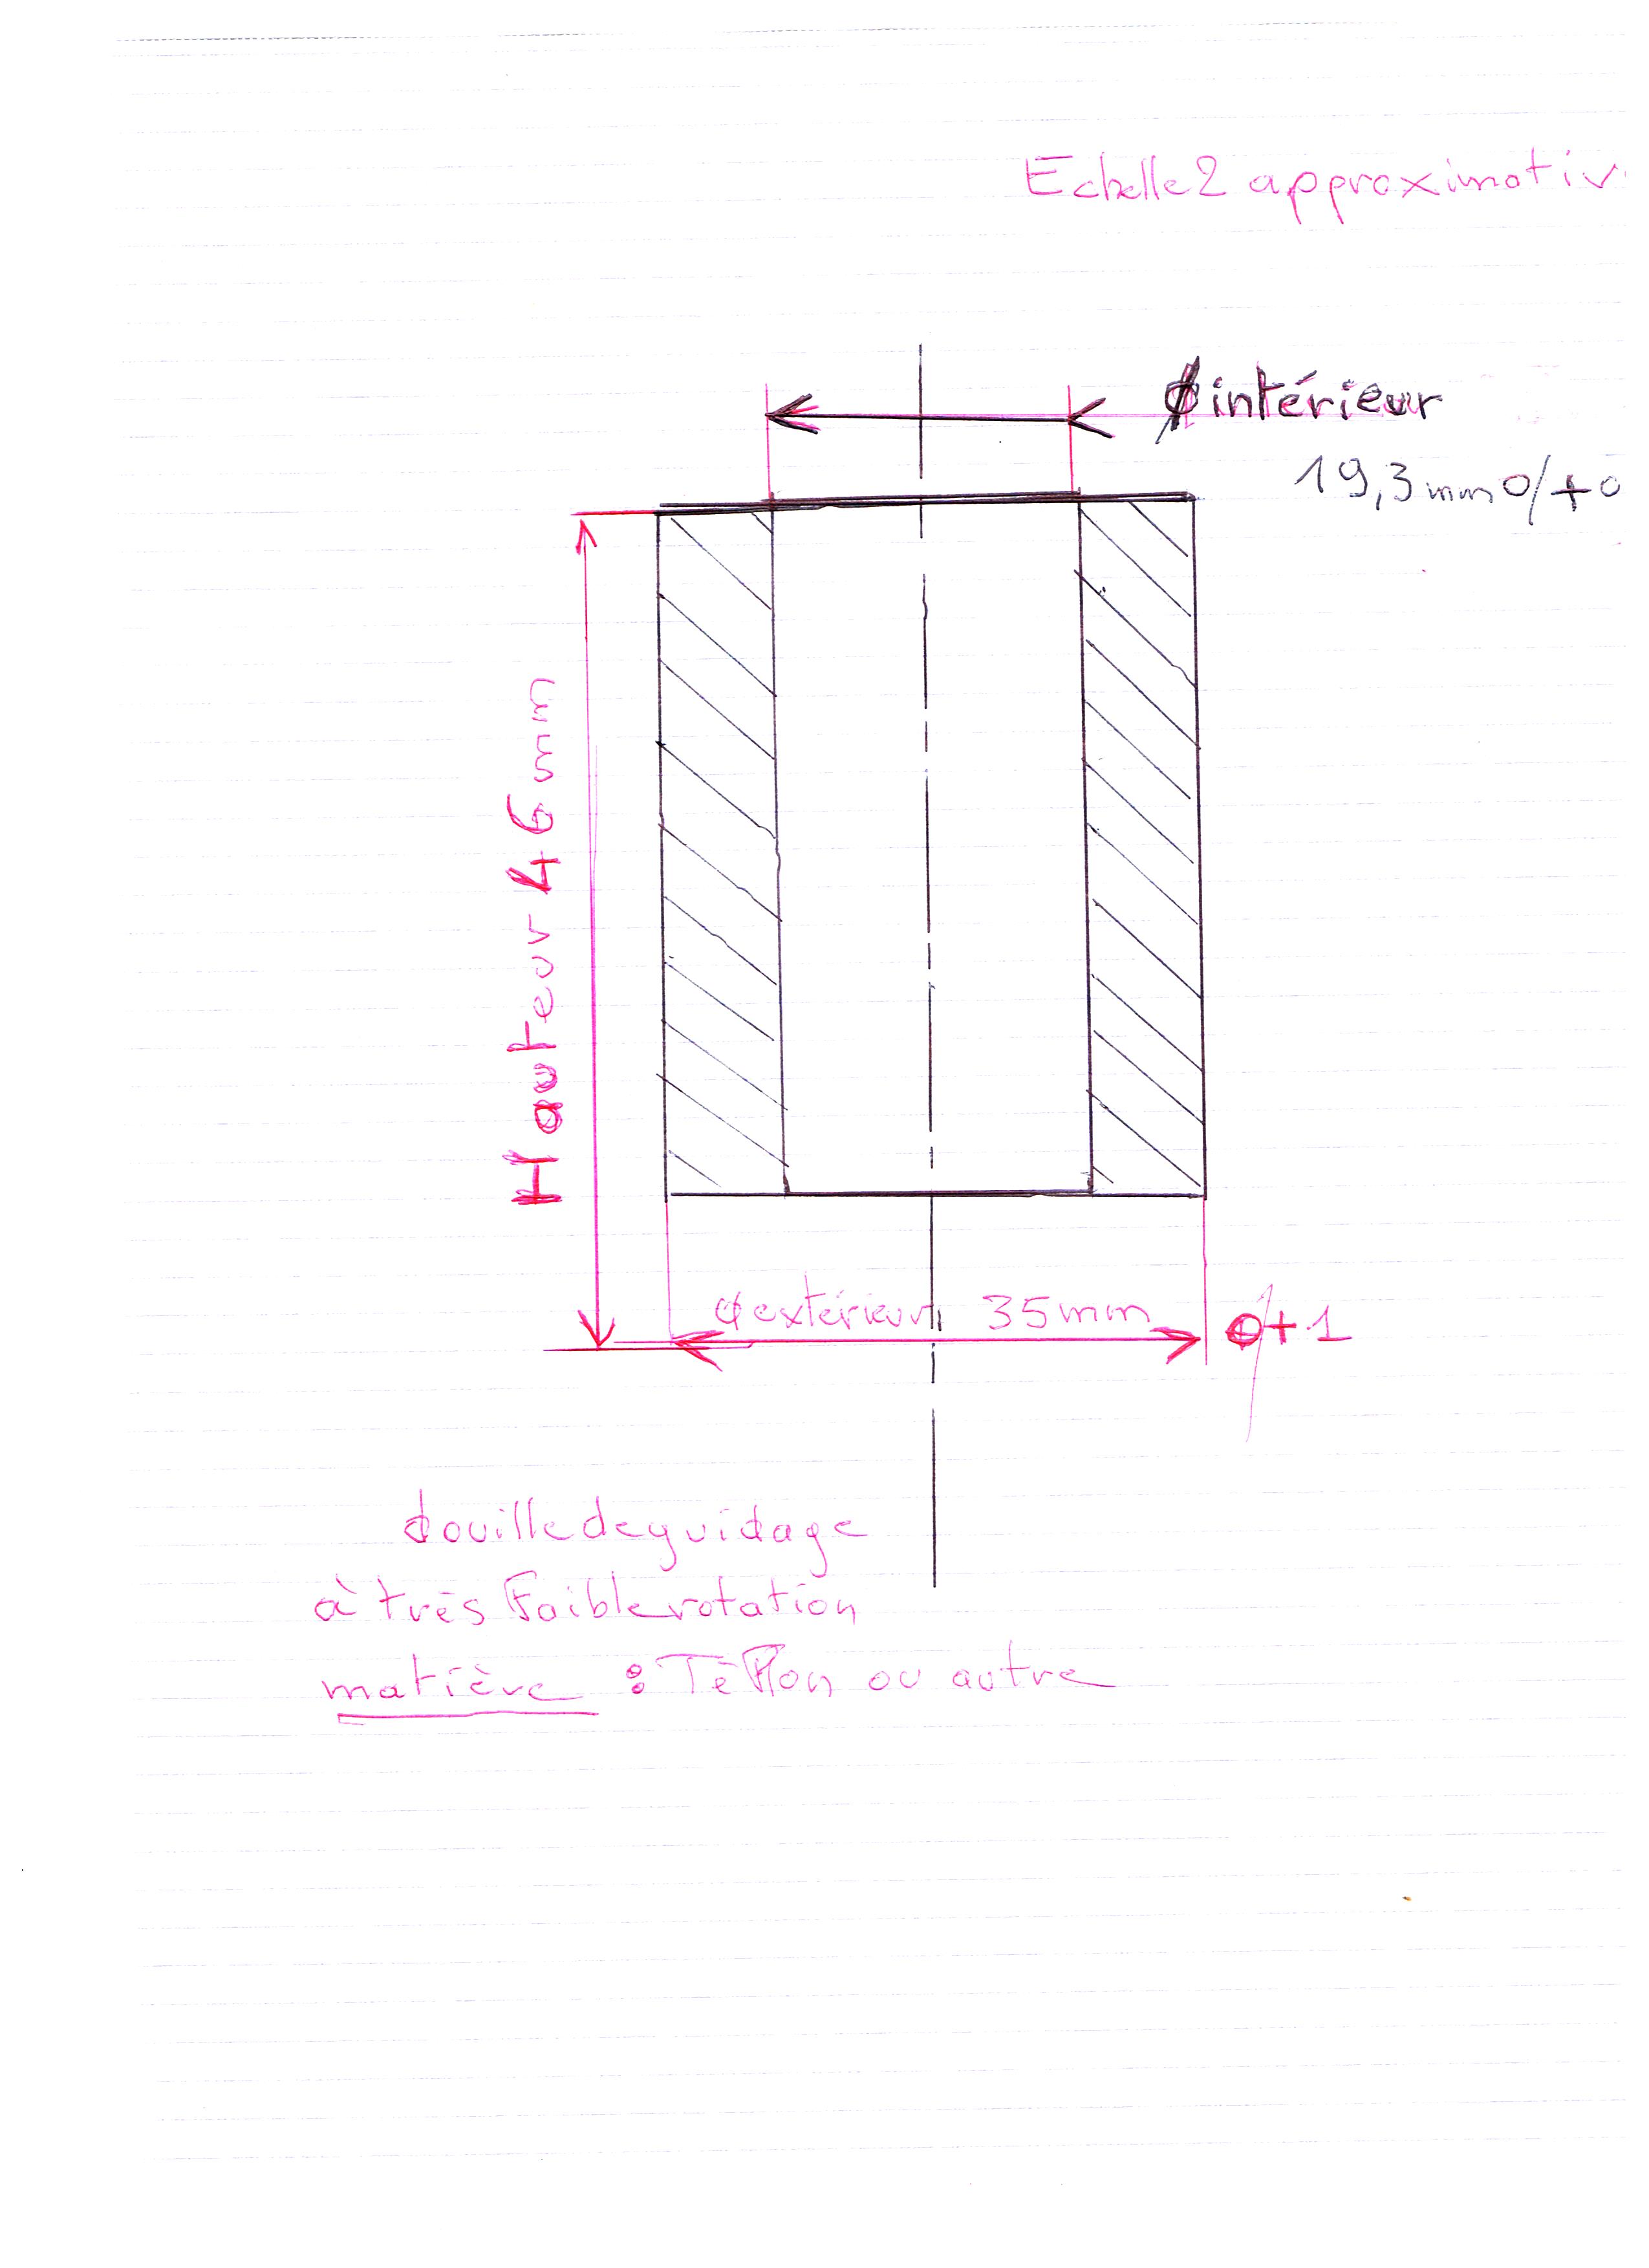 Echelle 2 approximativ
ϕ intérieur
19,3 mm 0/+0
Hauteur 46 mm
ϕ extérieur 35 mm 0/+1
douille de guidage
à très Faible rotation
matière : Téflon ou autre